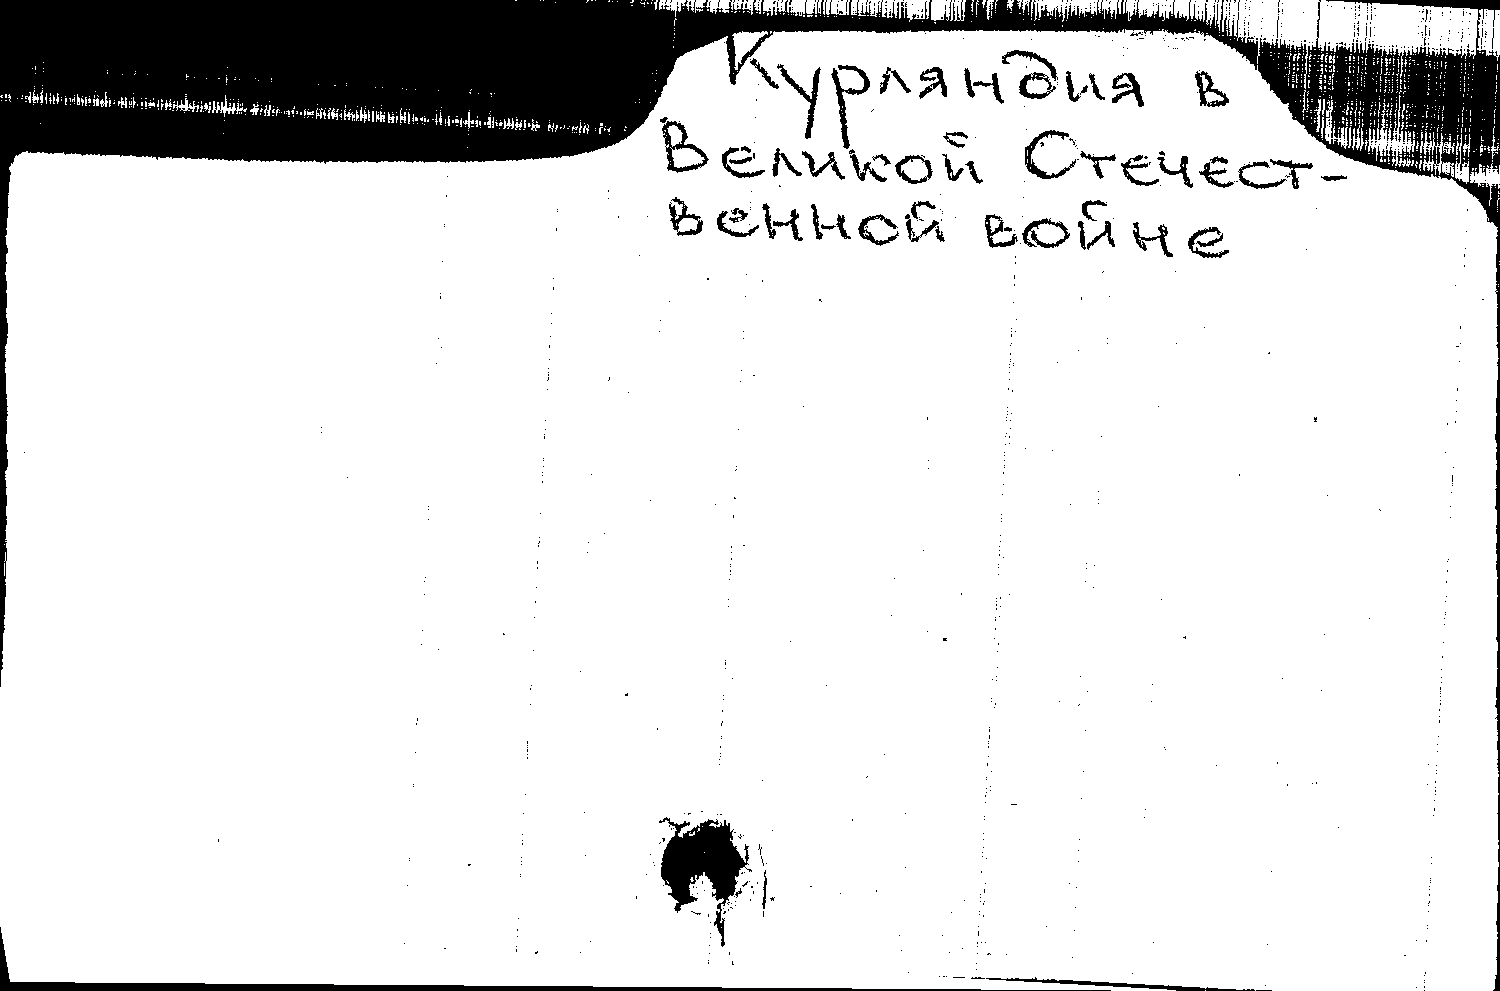 Курляндия в
Великой Отечест-
венной войне